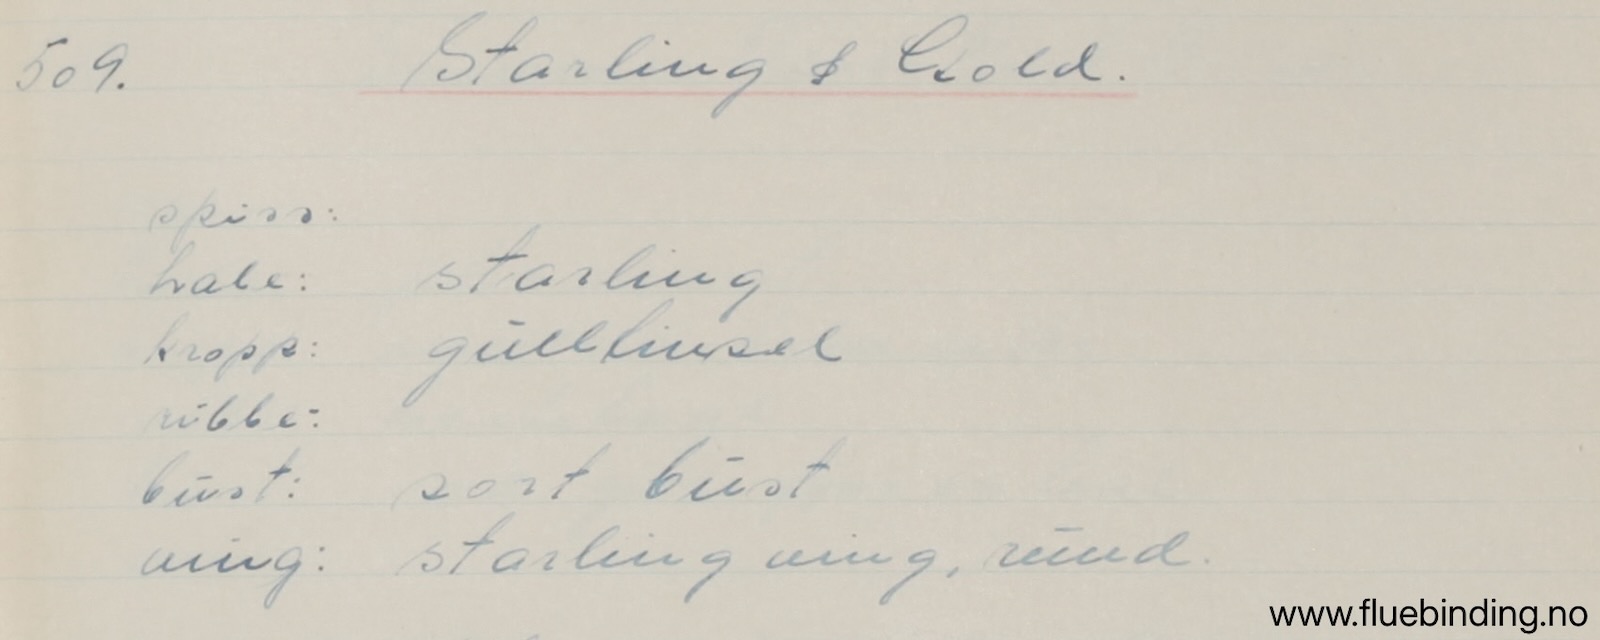 509. Starling & Gold.
spiss:
hale: starling
kropp: gulltinsel
ribbe:
bust: sort bust
ving: starling ving, rund.
www.fluebinding.no